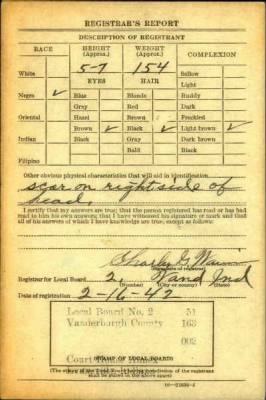 REGISTRAR'S REPORT
DESCRIPTION OF REGISTRANT
RACE HEIGHT (Approx.) WEIGHT (Approx.) COMPLEXION
White 5-7 154 Sallow
EYES HAIR Light
Negro ✓ Blue Blonde Ruddy
Gray Red Dark
Oriental Hazel Brown Freckled
Brown ✓ Black ✓ Light brown ✓
Indian Black Gray Dark brown
Bald Black
Filipino
Other obvious physical characteristics that will aid in identification
scar on right side of
head.
I certify that my answers are true; that the person registered has read or has had
read to him his own answers; that I have witnessed his signature or mark and that
all of his answers of which I have knowledge are true, except as follows:
Charles G.
(Signature of registrar)
Registrar for Local Board 2 Vand Ind
(Number) (City or county) (State)
Date of registration 2-16-42
Local Board No. 2 51
Vanderburgh County 163
002
Court House
STAMP OF LOCAL BOARD
(The stamp of the Local Board having jurisdiction of the registrant
shall be placed in the above space)